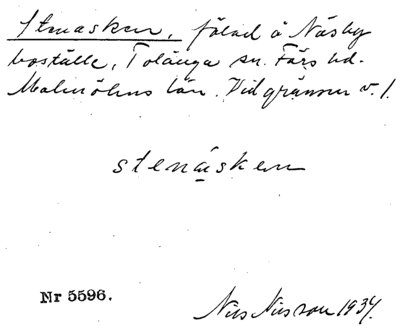 Stenasken, fälad å Näsby
boställe, Tolånga sn. Färs hd.
Malmöhus län. Vid gränsen v. 1.
stenasken
Nr 5596.
Nils Nilsson 1934.